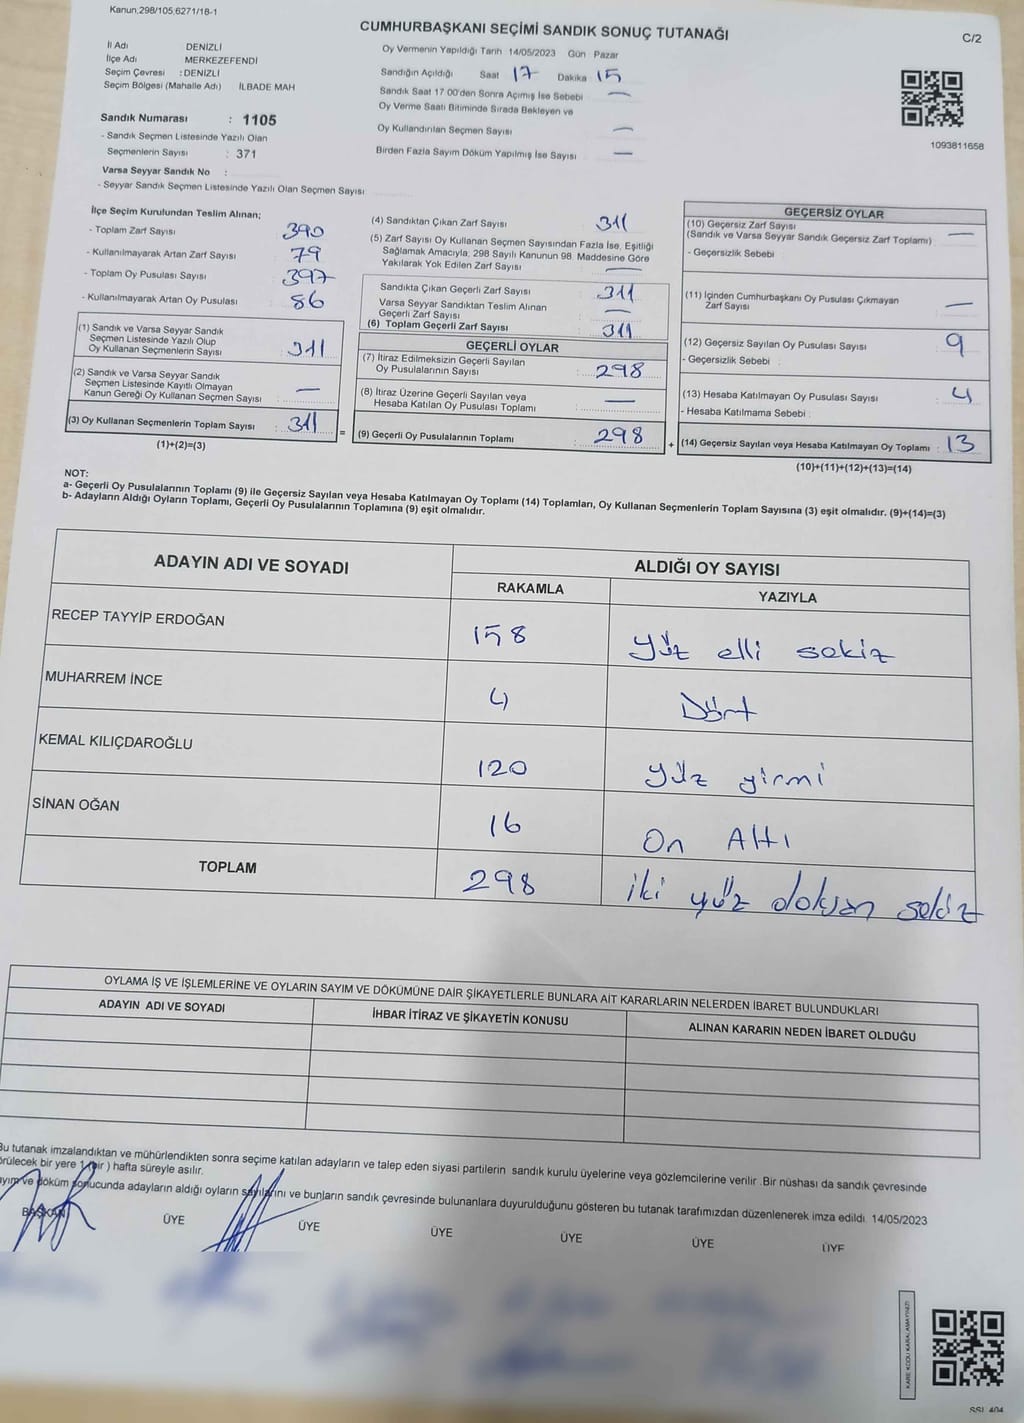 Kanun;298/105,6271/18-1
CUMHURBAŞKANI SEÇİMİ SANDIK SONUÇ TUTANAĞI
C/2
İl Adı DENİZLİ
İlçe Adı MERKEZEFENDİ
Seçim Çevresi : DENİZLİ
Seçim Bölgesi (Mahalle Adı) İLBADE MAH
Oy Vermenin Yapıldığı Tarih 14/05/2023 Gün Pazar
Sandığın Açıldığı Saat 17 Dakika 15
Sandık Saat 17:00'den Sonra Açımış İse Sebebi —
Oy Verme Saati Bitiminde Sırada Bekleyen ve
Oy Kullandırılan Seçmen Sayısı —
Birden Fazla Sayım Döküm Yapılmış İse Sayısı —
1093811658
Sandık Numarası : 1105
- Sandık Seçmen Listesinde Yazılı Olan
Seçmenlerin Sayısı : 371
Varsa Seyyar Sandık No :
- Seyyar Sandık Seçmen Listesinde Yazılı Olan Seçmen Sayısı
İlçe Seçim Kurulundan Teslim Alınan;
- Toplam Zarf Sayısı 390
- Kullanılmayarak Artan Zarf Sayısı 79
- Toplam Oy Pusulası Sayısı 397
- Kullanılmayarak Artan Oy Pusulası 86
(1) Sandık ve Varsa Seyyar Sandık
Seçmen Listesinde Yazılı Olup
Oy Kullanan Seçmenlerin Sayısı : 311
(2) Sandık ve Varsa Seyyar Sandık
Seçmen Listesinde Kayıtlı Olmayan
Kanun Gereği Oy Kullanan Seçmen Sayısı : —
(3) Oy Kullanan Seçmenlerin Toplam Sayısı : 311
(1)+(2)=(3)
(4) Sandıktan Çıkan Zarf Sayısı 311
(5) Zarf Sayısı Oy Kullanan Seçmen Sayısından Fazla İse, Eşitliği
Sağlamak Amacıyla; 298 Sayılı Kanunun 98. Maddesine Göre
Yakılarak Yok Edilen Zarf Sayısı —
Sandıkta Çıkan Geçerli Zarf Sayısı : 311
Varsa Seyyar Sandıktan Teslim Alınan
Geçerli Zarf Sayısı —
(6) Toplam Geçerli Zarf Sayısı : 311
GEÇERLİ OYLAR
(7) İtiraz Edilmeksizin Geçerli Sayılan
Oy Pusulalarının Sayısı : 298
(8) İtiraz Üzerine Geçerli Sayılan veya
Hesaba Katılan Oy Pusulası Toplamı —
= (9) Geçerli Oy Pusulalarının Toplamı : 298
GEÇERSİZ OYLAR
(10) Geçersiz Zarf Sayısı
(Sandık ve Varsa Seyyar Sandık Geçersiz Zarf Toplamı) —
- Geçersizlik Sebebi
(11) İçinden Cumhurbaşkanı Oy Pusulası Çıkmayan
Zarf Sayısı —
(12) Geçersiz Sayılan Oy Pusulası Sayısı : 9
- Geçersizlik Sebebi :
(13) Hesaba Katılmayan Oy Pusulası Sayısı : 4
- Hesaba Katılmama Sebebi :
+ (14) Geçersiz Sayılan veya Hesaba Katılmayan Oy Toplamı : 13
(10)+(11)+(12)+(13)=(14)
NOT:
a- Geçerli Oy Pusulalarının Toplamı (9) ile Geçersiz Sayılan veya Hesaba Katılmayan Oy Toplamı (14) Toplamları, Oy Kullanan Seçmenlerin Toplam Sayısına (3) eşit olmalıdır. (9)+(14)=(3)
b- Adayların Aldığı Oyların Toplamı, Geçerli Oy Pusulalarının Toplamına (9) eşit olmalıdır.
ADAYIN ADI VE SOYADI ALDIĞI OY SAYISI
RAKAMLA YAZIYLA
RECEP TAYYİP ERDOĞAN 158 Yüz elli sekiz
MUHARREM İNCE 4 Dört
KEMAL KILIÇDAROĞLU 120 Yüz yirmi
SİNAN OĞAN 16 On Altı
TOPLAM 298 iki yüz doksan sekiz
OYLAMA İŞ VE İŞLEMLERİNE VE OYLARIN SAYIM VE DÖKÜMÜNE DAİR ŞİKAYETLERLE BUNLARA AİT KARARLARIN NELERDEN İBARET BULUNDUKLARI
ADAYIN ADI VE SOYADI İHBAR İTİRAZ VE ŞİKAYETİN KONUSU ALINAN KARARIN NEDEN İBARET OLDUĞU
Bu tutanak imzalandıktan ve mühürlendikten sonra seçime katılan adayların ve talep eden siyasi partilerin sandık kurulu üyelerine veya gözlemcilerine verilir. Bir nüshası da sandık çevresinde
örülecek bir yere 1 (bir) hafta süreyle asılır.
ayım ve döküm sonucunda adayların aldığı oyların sayılarını ve bunların sandık çevresinde bulunanlara duyurulduğunu gösteren bu tutanak tarafımızdan düzenlenerek imza edildi. 14/05/2023
BAŞKAN ÜYE ÜYE ÜYE ÜYE ÜYE ÜYE
KARE KODU KARALAMAYINIZ!
SSI 404